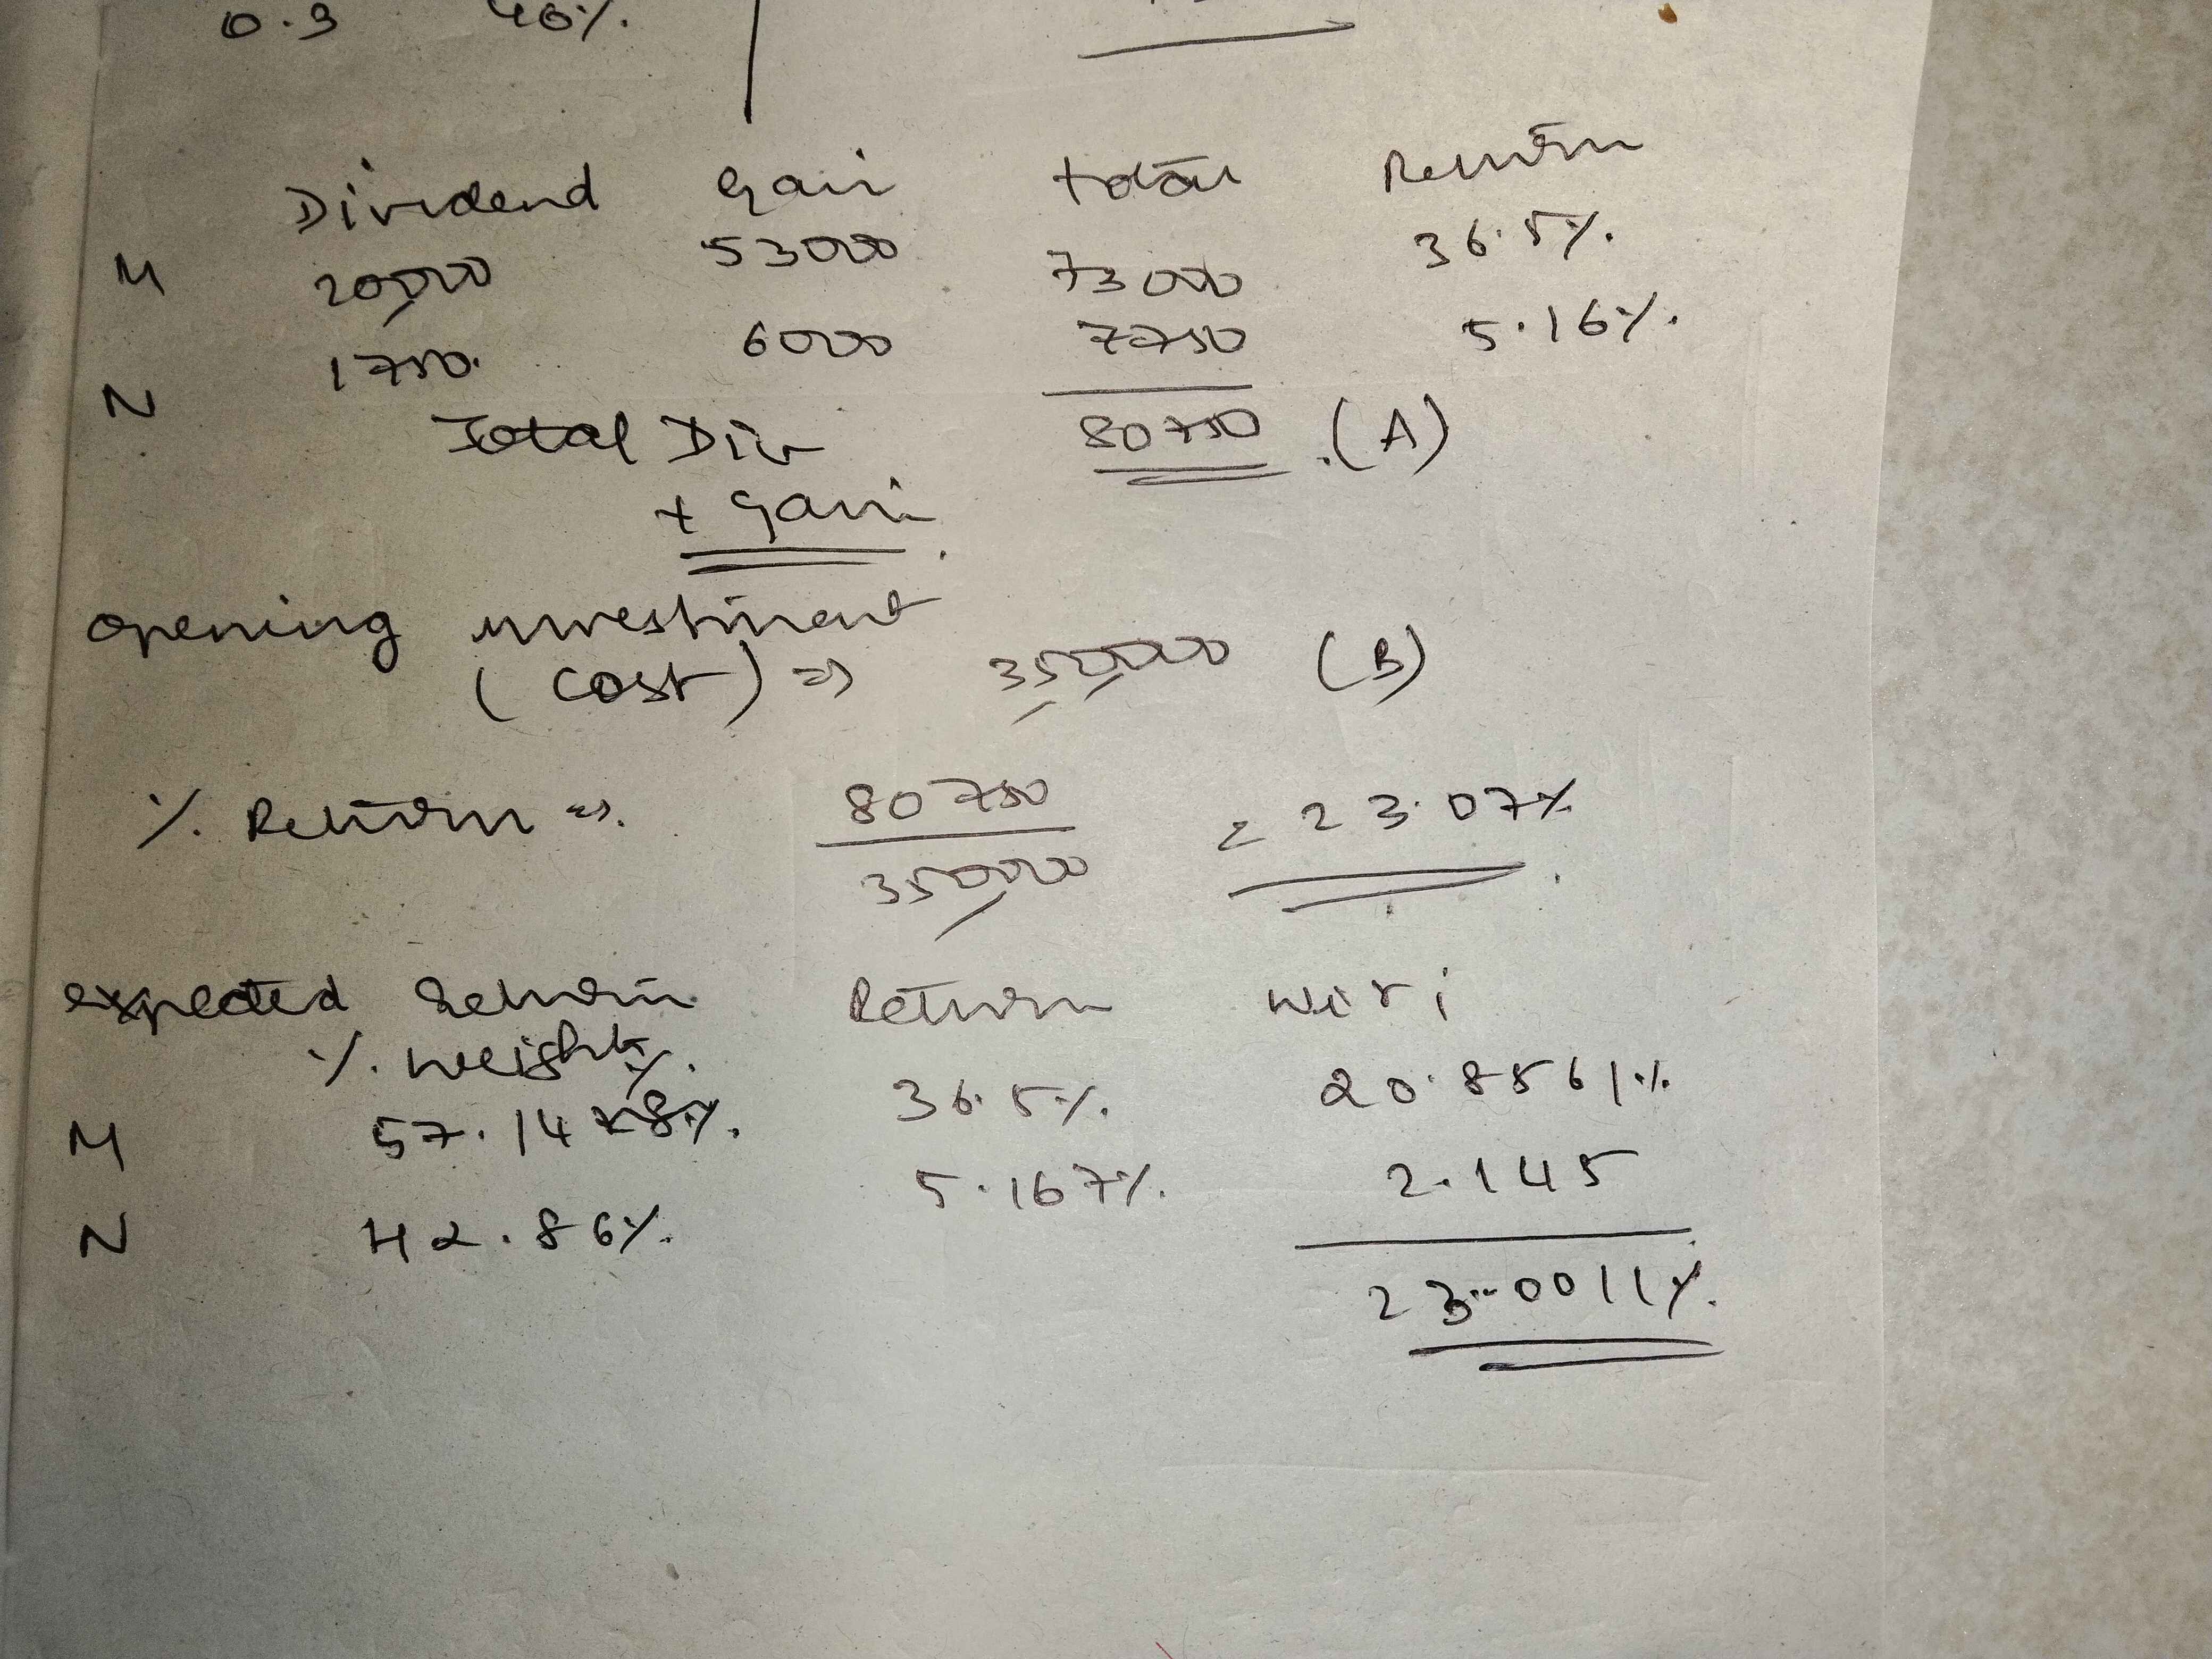 0.9 40%.
Dividend Gain total Return
M 20,000 53000 73000 36.5%.
N 1750. 6000 7750 5.16%.
Total Div 80750 (A)
+ gain
opening investment
(cost) => 350,000 (B)
% Return => 80750 / 350,000 = 23.07%
expected return Return wiri
% weights
M 57.14 % 36.5%. 20.8561%
N 42.86%. 5.167%. 2.145
23.0011%.